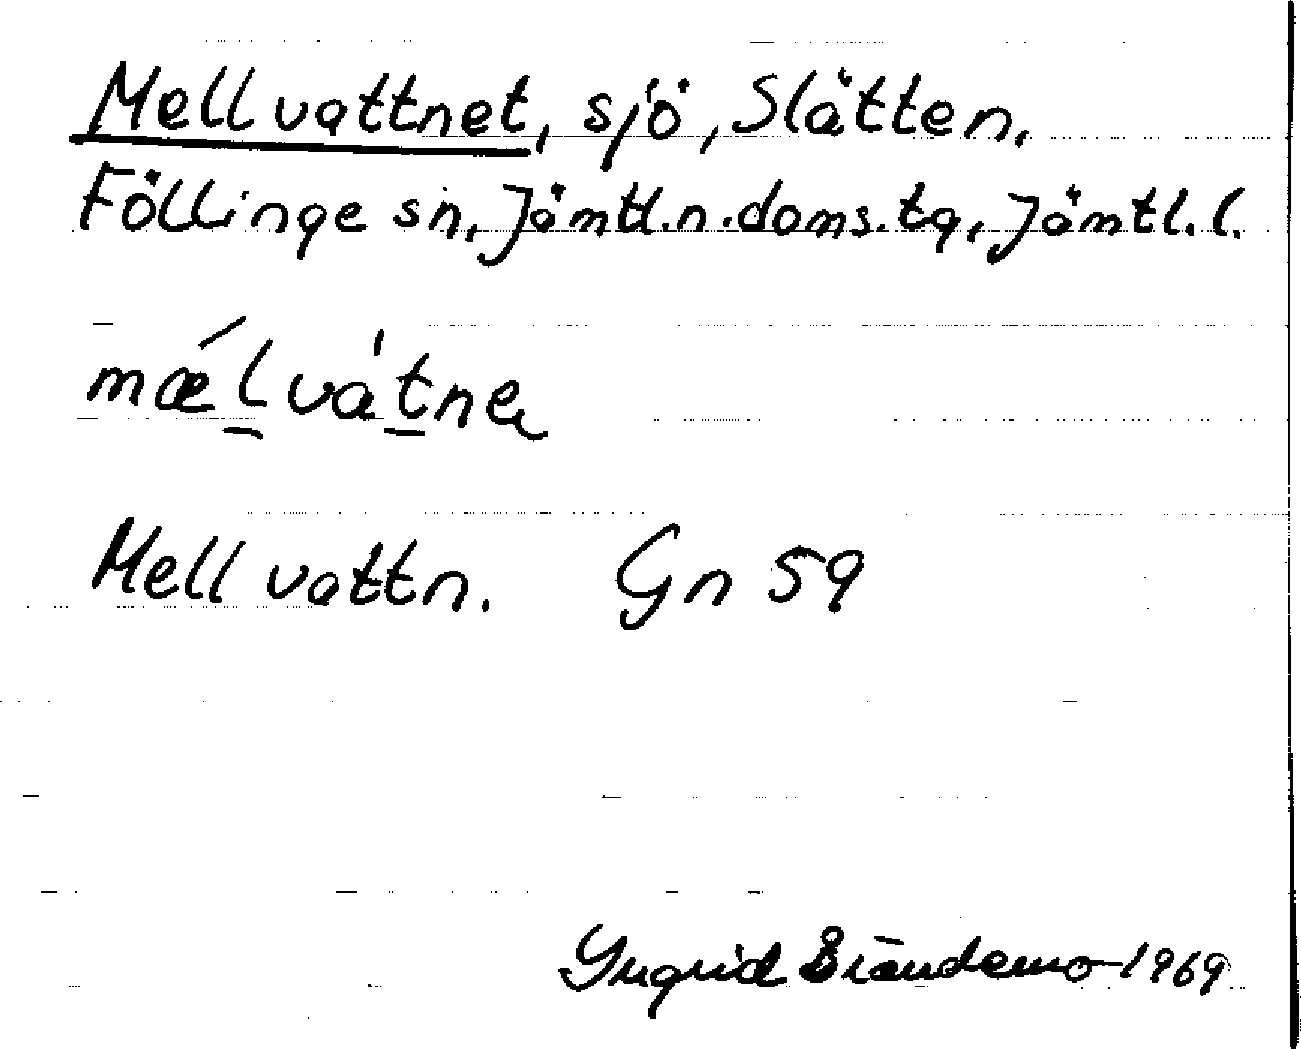 Mellvattnet, sjö, Slätten.
Föllinge sn, Jämtl.n.doms.tg, Jämtl.l.
mǽl̲vát̲ne
Mellvattn. Gn 59
Ingrid Brändemo 1969